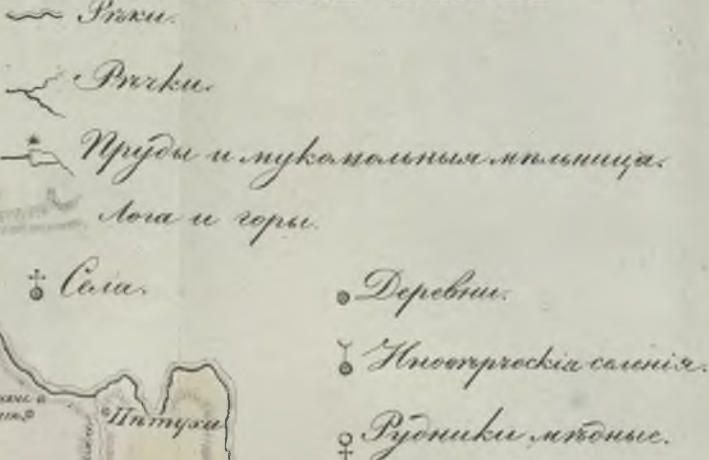 Рѣки.
Рѣчки.
Пруды и мукомольныя мѣльница.
Лога и горы.
Села.
Деревни.
Иновѣрческія селенія.
Пѣтухи
Рудники мѣдные.